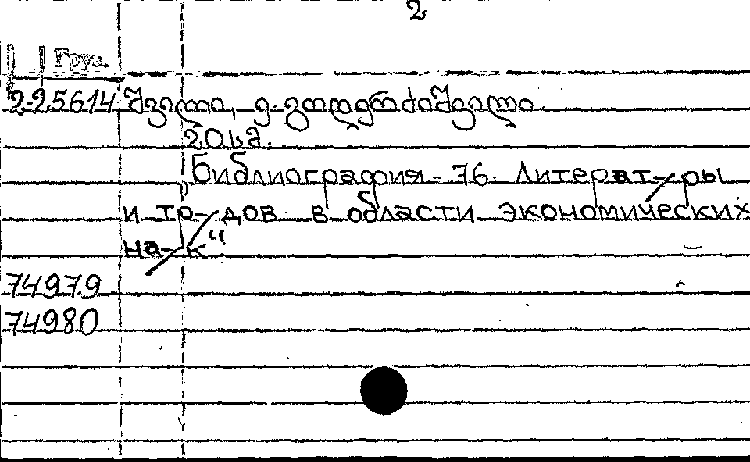 2
Груз.
2-25614 შვილი, გ. გოდერძიშვილი.
20 სმ.
Библиография - 76. Литерат-ры
и тр-дов в области экономических
на-к"
74979
74980